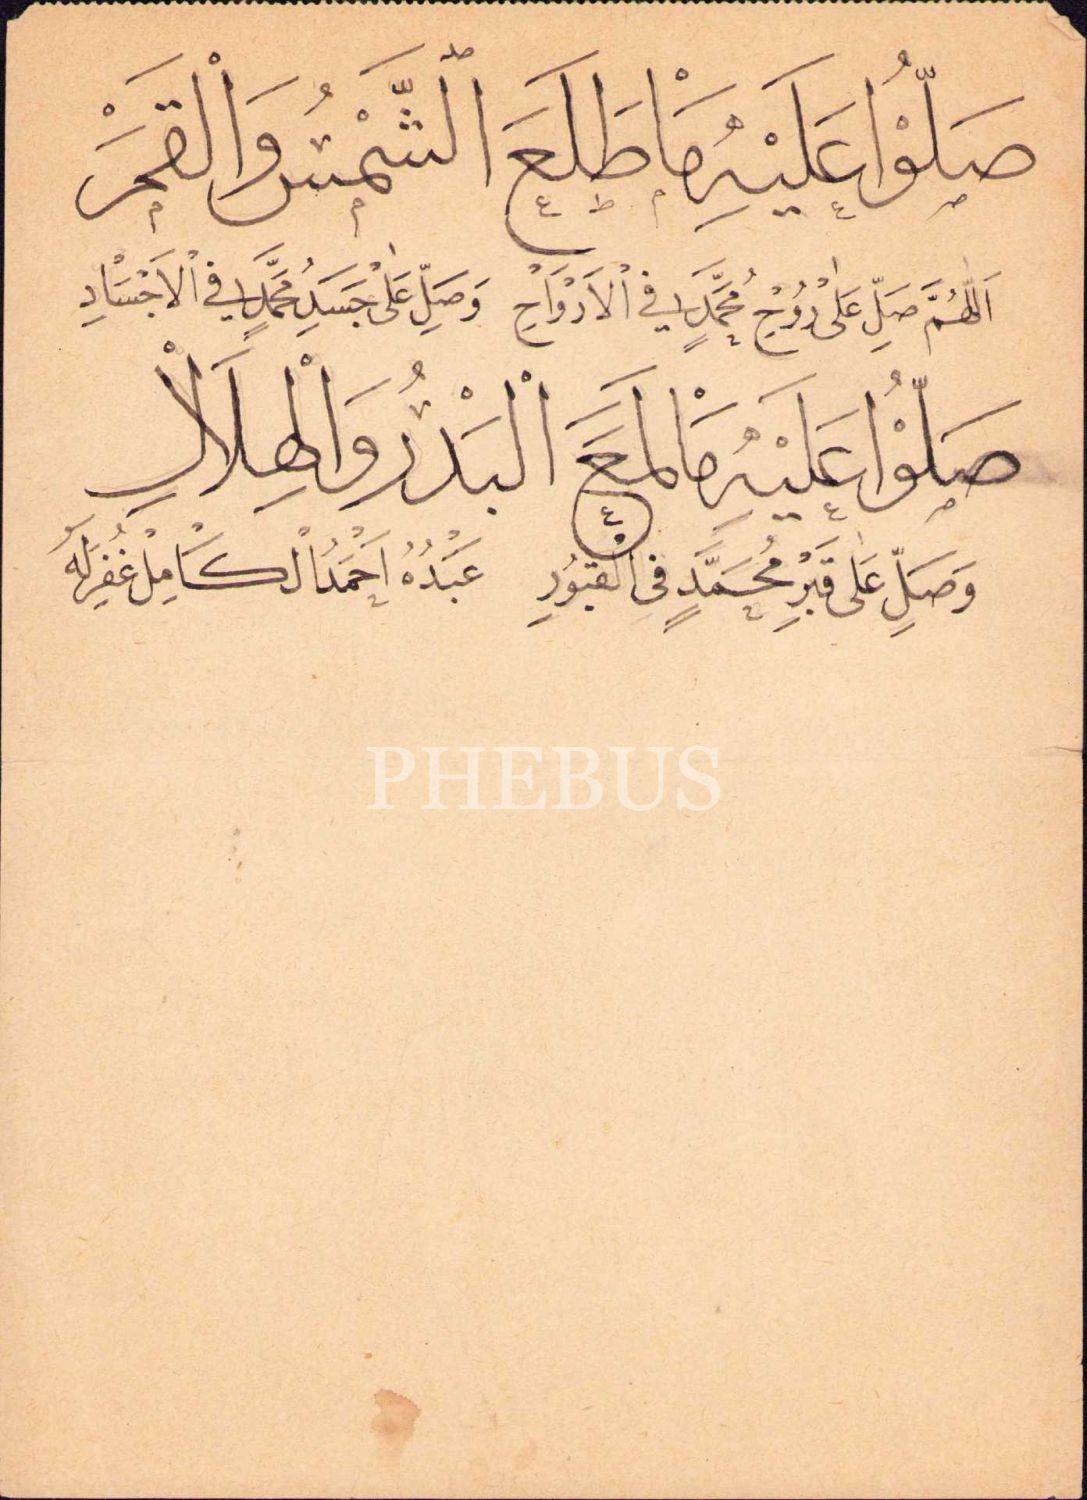 صَلُّوْا عَلَيْهِ مَا طَلَعَ الشَّمْسُ وَالْقَمَرْ
اَللّٰهُمَّ صَلِّ عَلٰى رُوْحِ مُحَمَّدٍ فِي الْاَرْوَاحِ وَصَلِّ عَلٰى جَسَدِ مُحَمَّدٍ فِي الْاَجْسَادِ
صَلُّوْا عَلَيْهِ مَا لَمَعَ الْبَدْرُ وَالْهِلَالِ
وَصَلِّ عَلٰى قَبْرِ مُحَمَّدٍ فِى الْقُبُوْرِ عَبْدُهُ اَحْمَدُ الْكَامِلْ غُفِرَلَهُ
PHEBUS